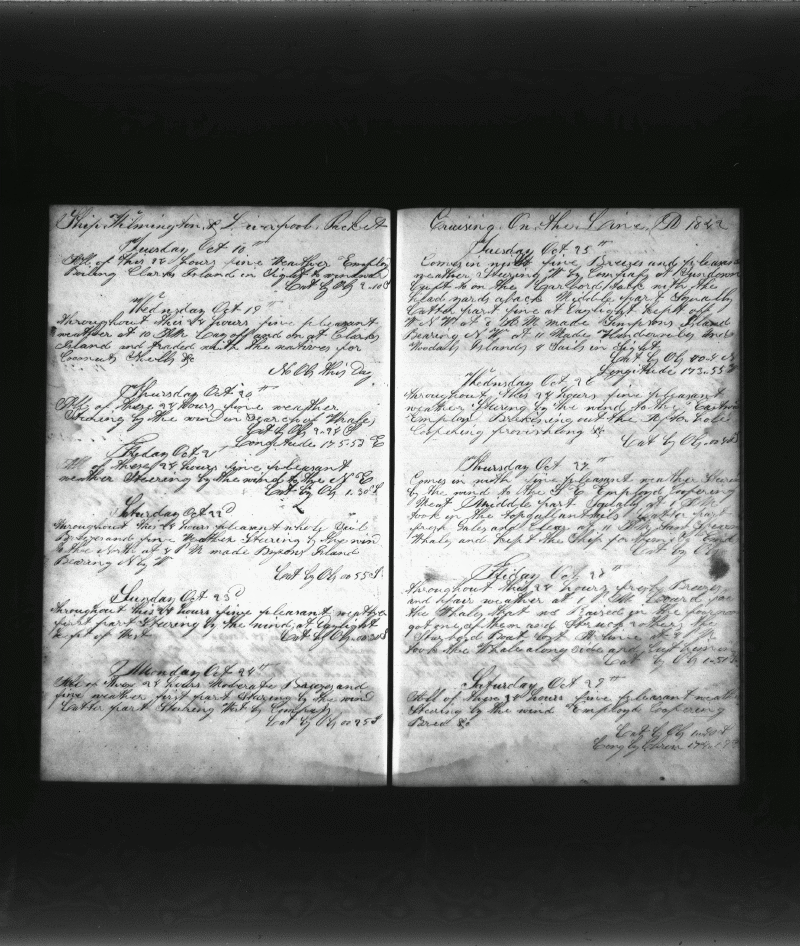 Ship Wilmington & Liverpool Packet
Tuesday Oct 18th
All of this 24 hours fine weather Employ
Boiling Clarks Island in Sight to windward
Lat by Ob 2.10 S
Wednesday Oct 19th
Throughout this 24 hours fine pleasant
weather at 10 AM Lay off and on at Clarks
Island and traded with the natives for
Shells &c
No Ob this Day
Thursday Oct 20th
All of these 24 hours fine weather
Steering by the wind in Search of Whales
Lat by Ob 2.24 S
Longitude 175.53 E
Friday Oct 21
All of these 24 hours fine pleasant
weather Steering by the wind to the N E
Lat by Ob 1.30 S
Saturday Oct 22d
Throughout this 24 hours pleasant whole Sail
Breeze and fine weather Steering by the wind
to the North at 4 PM made Byrons Island
Bearing N by W
Lat by Ob 00 55 S
Sunday Oct 23d
Throughout this 24 hours fine pleasant weather
first part Steering by the wind, at Daylight
Kept of West
Lat by Ob 00 30 S
Monday Oct 24th
All of these 24 hours Moderate Breezes and
fine weather first part Steering by the wind
Latter part Steering West by Compass
Lat by Ob 00 25 S
Cruising On the Line AD 1842
Tuesday Oct 25th
Comes in with fine Breezes and pleasant
weather Steering W by Compass at Sundown
on the Larboard tack with the
head yards aback Middle part Squally
Latter part fine at Daylight Kept off
W N W at 8 AM made Simpsons Island
Bearing N W, at 11 Made Hendervilles and
Woodalls Islands 2 Sails in Sight
Lat by Ob
Longitude 173.55
Wednesday Oct 26
Throughout this 24 hours fine pleasant
weather Steering by the wind to the Eastward
Employ Breaking out the After hole
Coopering provisions &c
Lat by Ob
Thursday Oct 27th
Comes in with fine pleasant weather Steering
by the wind to the S E Employd Coopering
Meat Middle part Squally at
took in the Topgallantsails Latter part
fresh Gales and Clear at 11 AM
Whales and Kept the Ship
Lat by Ob
Friday Oct 28th
Throughout this 24 hours fresh Breezes
and fair weather at 1 PM Lowerd for
the Whales that was Raised in the forenoon
got one of them and Struck others the
Starbord Boat Lost
took the Whale along side and
Lat by Ob
Saturday Oct 29th
All of these 24 hours fine pleasant weather
Steering by the wind Employd Coopering
Bread &c
Lat by Ob
Long by Chron